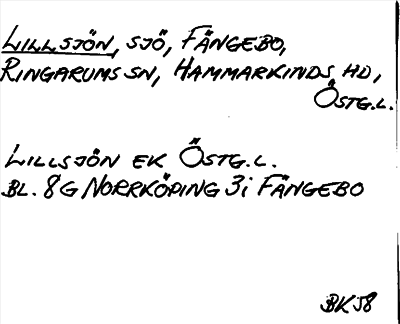 LILLSJÖN, SJÖ, FÄNGEBO,
RINGARUMS SN, HAMMARKINDS HD,
ÖSTG.L.
LILLSJÖN EK ÖSTG.L.
BL. 8G NORRKÖPING 3i FÄNGEBO
BK58